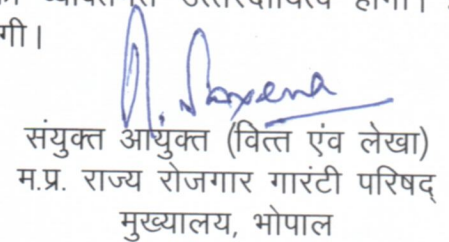 उत्तरदायित्व होगा।
गी।
संयुक्त आयुक्त (वित्त एंव लेखा)
म.प्र. राज्य रोजगार गारंटी परिषद्
मुख्यालय, भोपाल